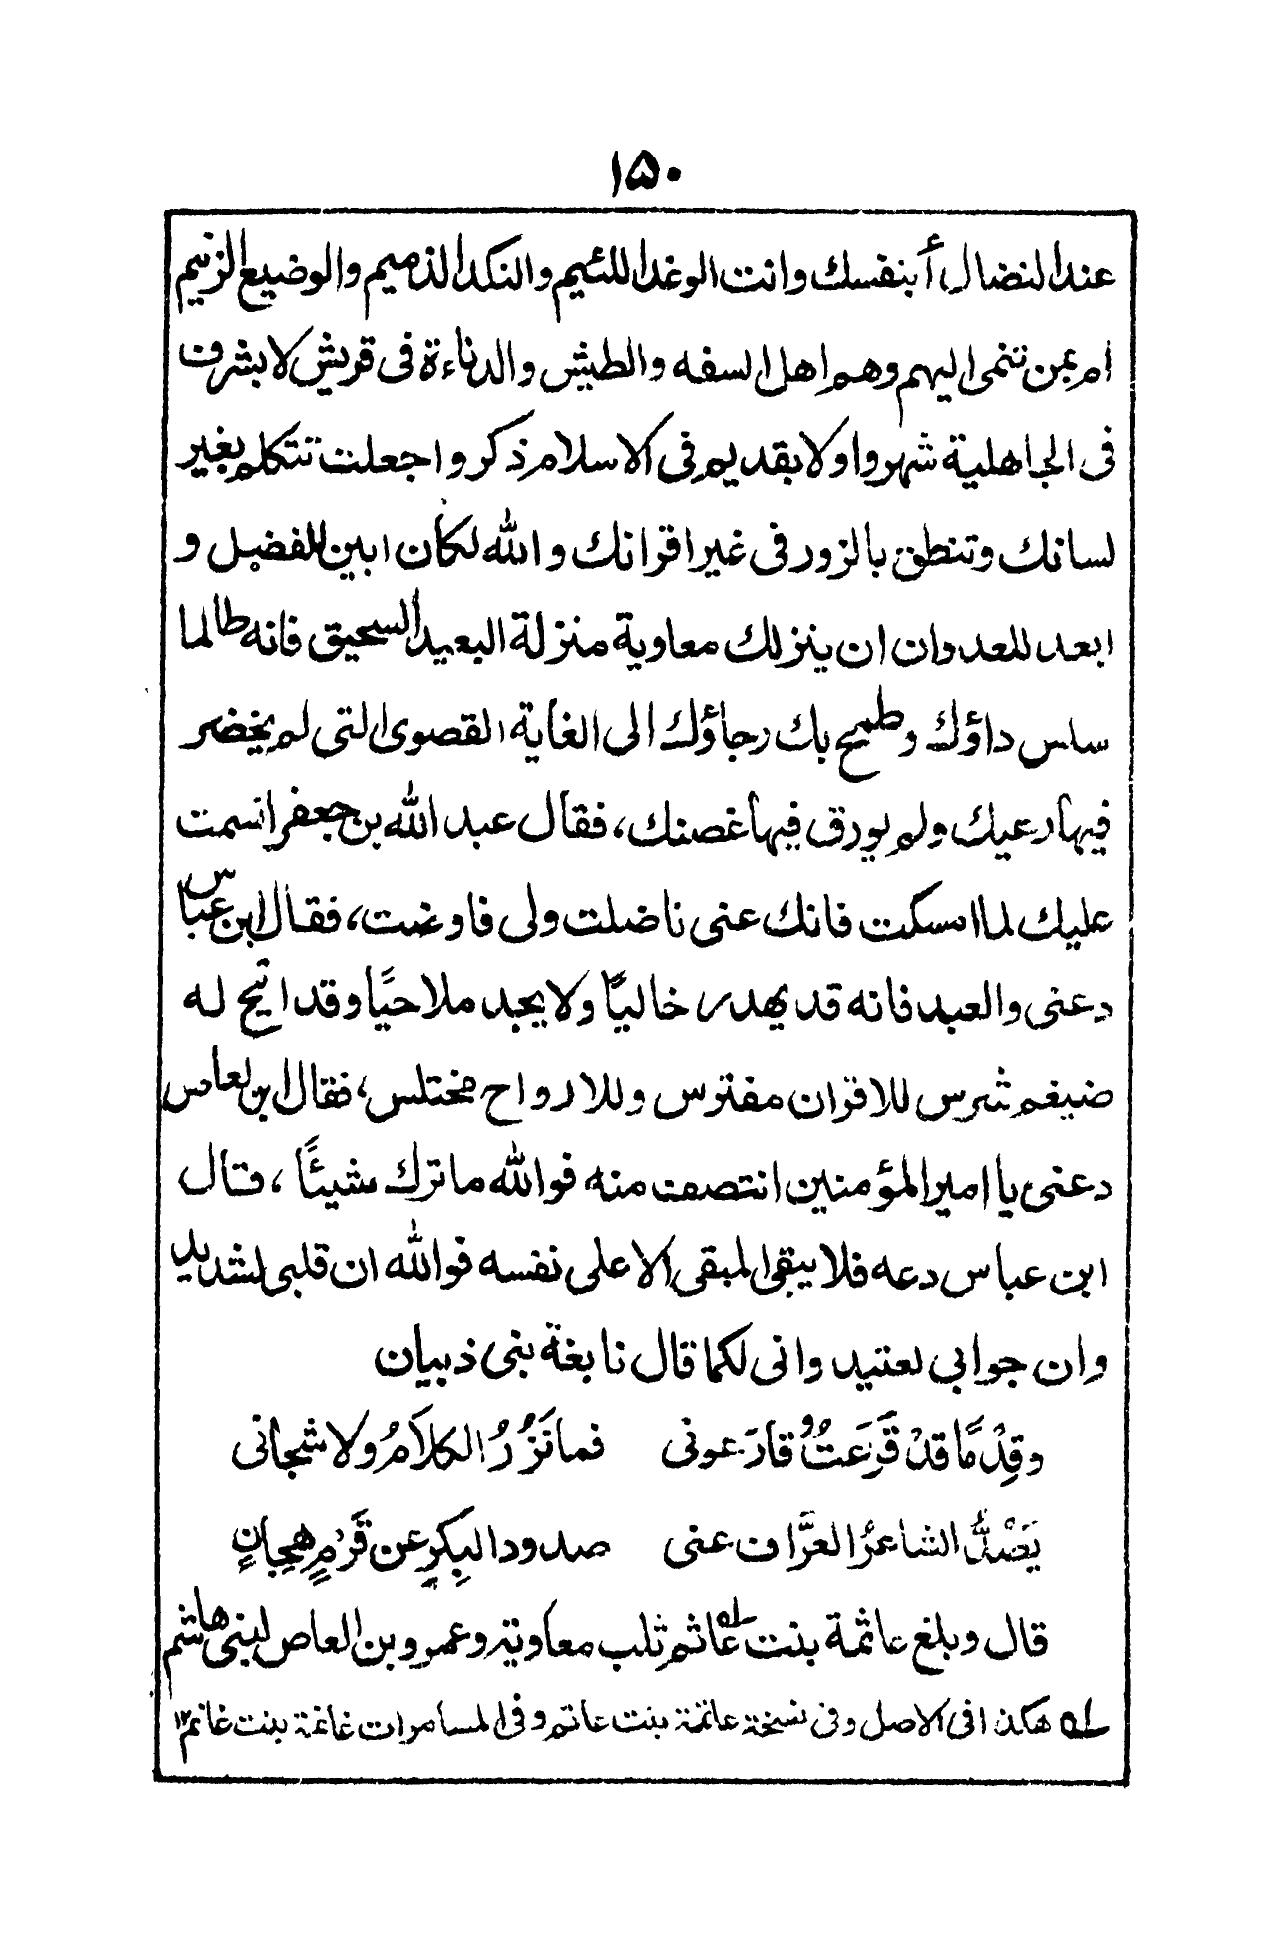 ١٥٠
عند النضال أبنفسك وانت الوغد اللئيم والنكد الذميم والوضيع الزنيم
ام بمن تنتمى اليهم وهم اهل السفه والطيش والدناءة فى قريش لا بشرف
فى الجاهلية شهروا ولا بقديم فى الاسلام ذكروا جعلت تتكلم بغير
لسانك وتنطق بالزور فى غير اقرانك والله لكان ابين للفضل و
ابعد للعدوان ان ينزلك معاوية منزلة البعيد السحيق فانه طالما
ساس داؤك وطمح بك رجاؤك الى الغاية القصوى التى لم يخضر
فيها رعيك ولم يورق فيها غصنك، فقال عبد الله بن جعفر اقسمت
عليك لما امسكت فانك عنى ناضلت ولى فاوضت، فقال ابن عباس
دعنى والعبد فانه قد يهدر خاليًا ولا يجد ملاحيًا وقد اتيح له
ضيغم شرس للاقران مفترس وللارواح مختلس، فقال ابن العاص
دعنى يا امير المؤمنين انتصف منه فوالله ما ترك شيئًا، قال
ابن عباس دعه فلا يبقى المبقى الا على نفسه فوالله ان قلبى لشديد
وان جوابى لعتيد وانى لكما قال نابغة بنى ذبيان
وقِدْمًا قدْ قَرَعتُ وقارَعونى فما نَزُرُ الكلاَمُ ولا شجانى
يَصُدُّ الشاعرُ العرَّاف عنى صدود البِكرِ عن قَرْمٍ هِجانِ
قال وبلغ عاثمة بنت عاثم ثلب معاوية وعمرو بن العاص لبنى هاشم
له هكذا فى الاصل وفى نسخة عاتمة بنت عاتم وفى المسامرات غانمة بنت غانم ١٢